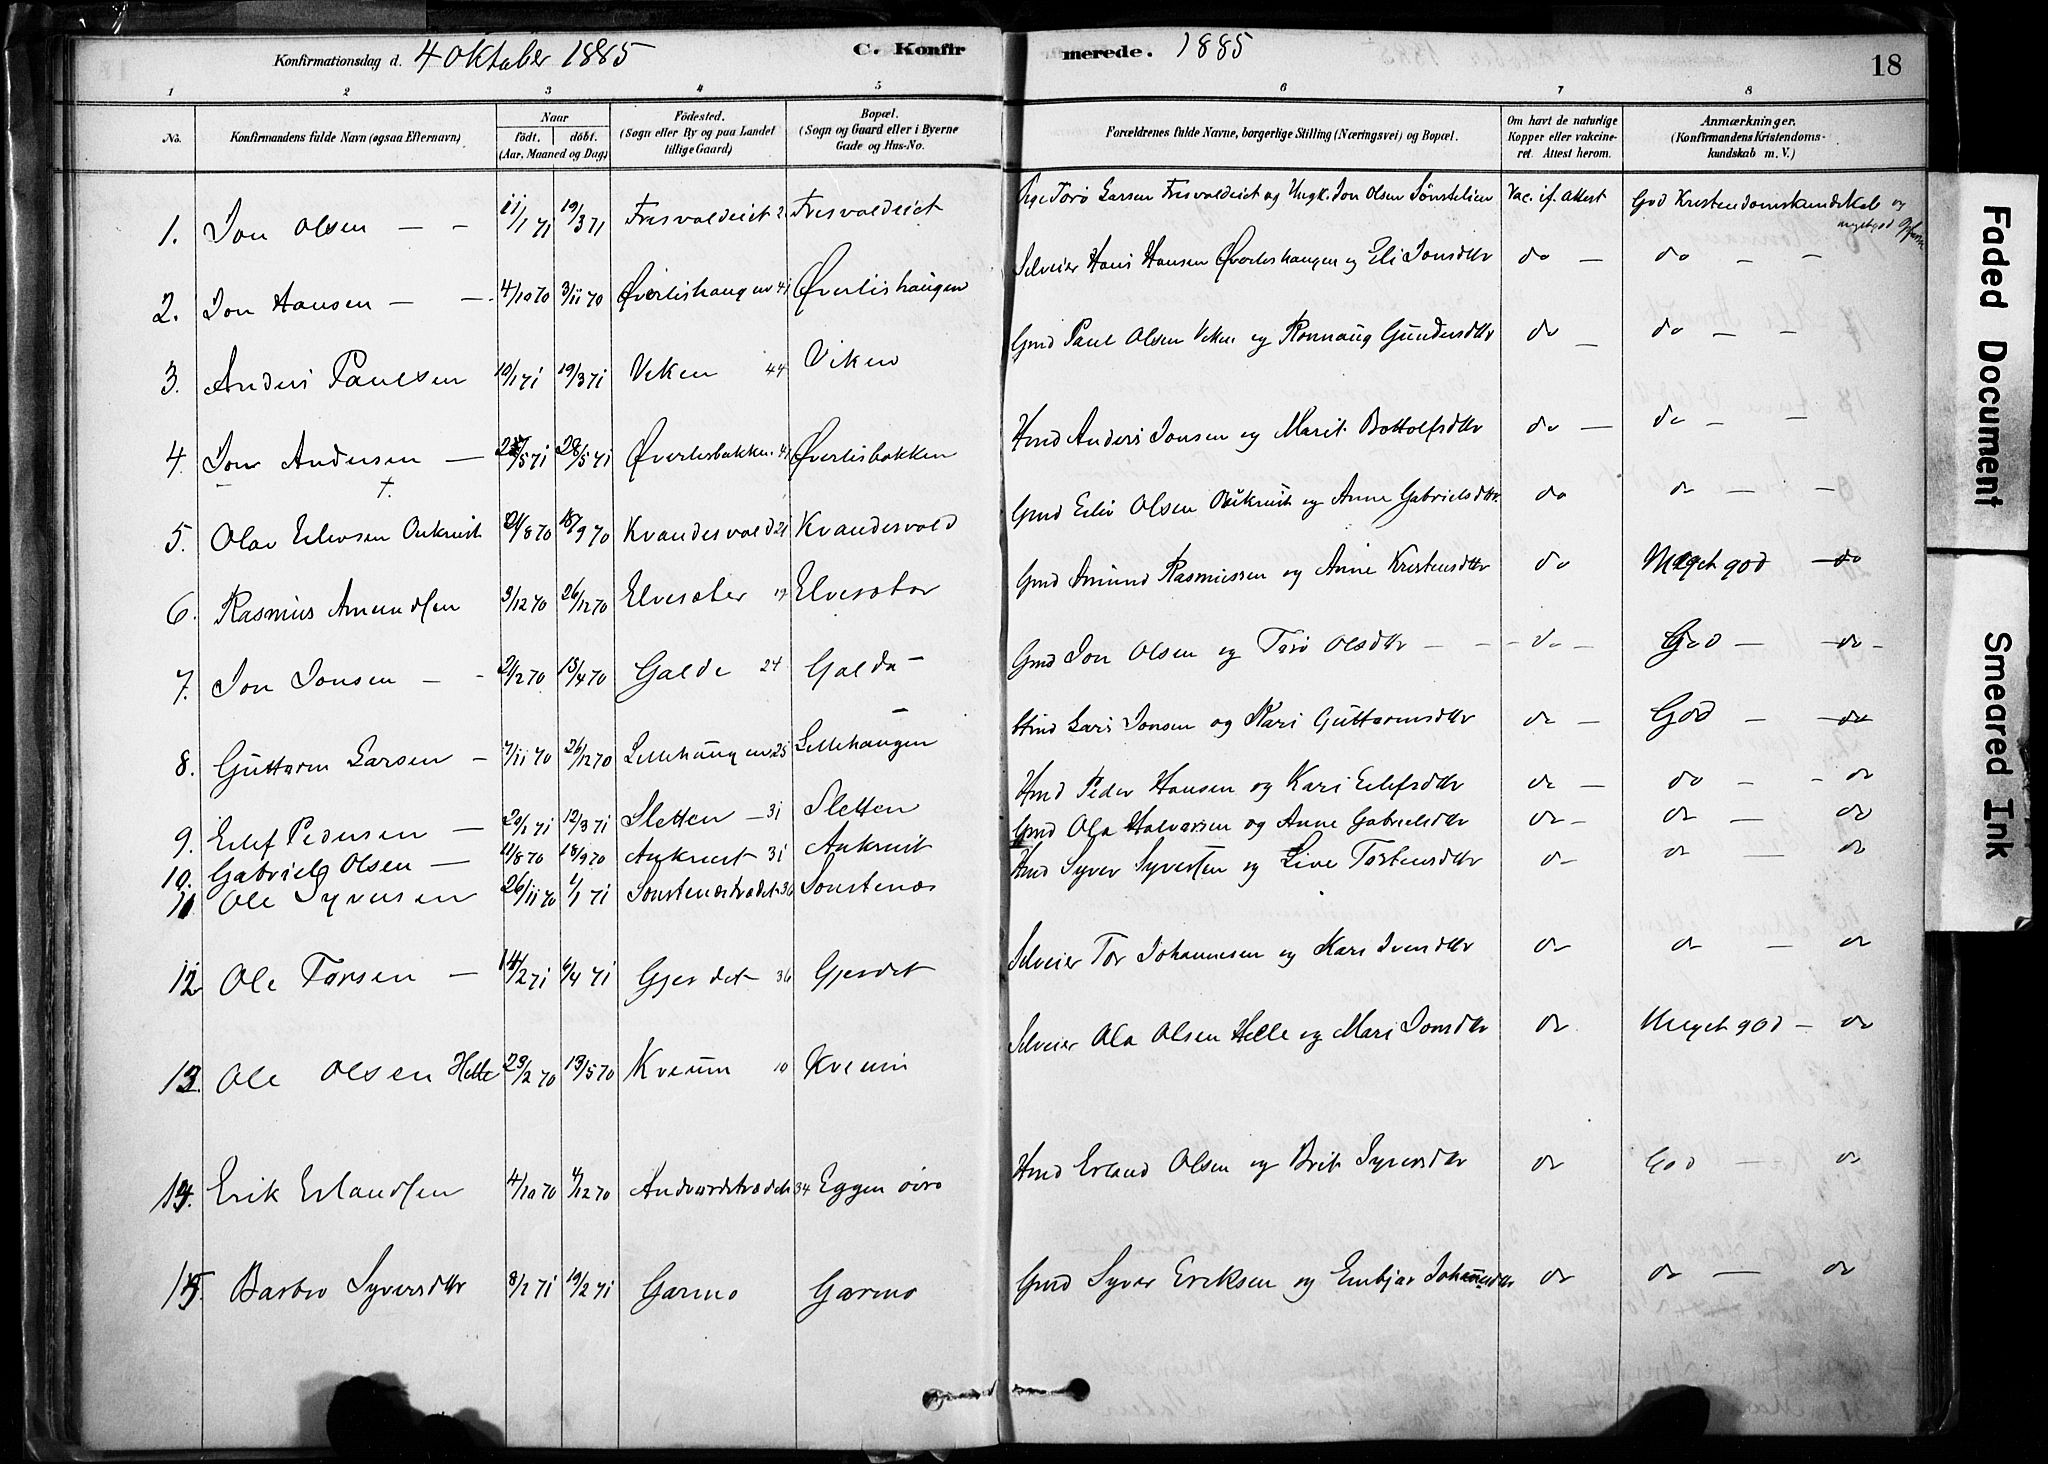 Konfirmationsdag d. 4 Oktober 1885 C. Konfirmerede. 1885 18
1 2 3 4 5 6 7 8
No. Konfirmandens fulde Navn (ogsaa Efternavn) Naar födt. döbt. (Aar, Maaned og Dag) Födested. (Sogn eller By og paa Landet tillige Gaard) Bopæl. (Sogn og Gaard eller i Byerne Gade og Hus-No. Forældrenes fulde Navne, borgerlige Stilling (Næringsvei) og Bopæl. Om havt de naturlige Kopper eller vakcineret. Attest herom. Anmærkninger. (Konfirmandens Kristendomskundskab m. V.)
1. Jon Olsen — — 11/1 71 19/3 71 Frisvoldeiet Frisvoldeiet Pige Torø Larsen Frisvoldeiet og Ungk. Jon Olsen Sønstelien Vac. if. Attest God Kristendomskundskab og meget god
2. Jon Hansen — — 4/10 70 3/11 70 Øverlishaugen 41 Øverlishaugen Selveier Hans Hansen Øverlishaugen og Eli Jonsdtr do — do — —
3. Anders Paulsen 10/1 71 19/3 71 Viken 44 Viken Gmd Paul Olsen Viken og Ronnaug Gundersdtr do — do — —
4. Jon Andersen — /5 71 28/5 71 Øverlisbakken 41 Øverlisbakken Hmd Anders Jonsen og Marit Bottolfsdtr do — do — —
†.
5. Olav Eilevsen Aukrust 21/8 70 18/9 70 Kvandesvold 21 Kvandesvold Gmd Eiliv Olsen Aukrust og Anne Gabrielsdtr do do — —
6. Rasmus Amundsen 3/12 70 26/12 70 Elvesæter 17 Elvesæter Gmd Amund Rasmussen og Anne Kristensdtr do Meget god — do
7. Jon Jonsen — - 21/2 70 15/4 70 Galde 24 Galde — Gmd Jon Olsen og Torø Olsdtr — — do — God — do -
8. Guttorm Larsen — 7/11 70 26/12 70 Lillehaugen 25 Lillehaugen Hmd Lars Jonsen og Kari Guttormsdtr do — God — do
9. Eilef Pedersen — 29/1 71 12/3 71 Sletten — 31 Sletten Hmd Peder Hansen og Kari Eilefsdtr do — do — - do
10. Gabriel Olsen — 11/8 70 18/9 70 Aukrust 31 Aukrust Gmd Ola Halvorsen og Anne Gabrielsdtr do - do — do
11. Ole Syversen 26/11 70 1/1 71 Sonstenæstrædet 36 Sonstenæs Hmd Syver Syversen og Live Torstensdtr do - do — do
12 Ole Torsen — 14/2 71 6/4 71 Gjerdet 36 Gjerdet Selveier Tor Johannesen og Kari Iversdtr do do — do
13. Ole Olsen Helle 23/2 70 13/5 70 Kveum 10 Kveum Selveier Ola Olsen Helle og Mari Jonsdtr do Meget god — do
14. Erik Erlandsen 4/10 70 4/12 70 Andvordstrædet 34 Eggen øvre Hmd Erland Olsen og Brit Syversdtr do God — do
15. Barbro Syversdtr 8/2 71 19/2 71 Garmo Garmo Gmd Syver Eriksen og Embjør Johannesdtr do do — do
Faded Document
Smeared Ink